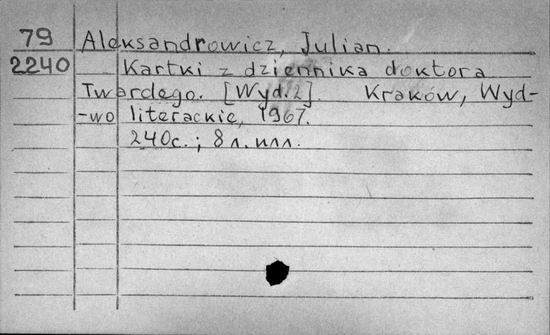 79 Aleksandrowicz, Julian.
2240 Kartki z dziennika doktora
Twardego. [Wyd. 2]. Kraków, Wyd-
-wo literackie, 1967.
240с.; 8 л. илл.